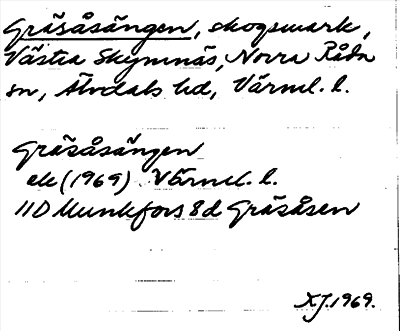 Gräsåsängen, skogsmark,
Västra Skymnäs, Norra Råda
sn, Älvdals hd, Värml. l.
Gräsåsängen
ek (1969) Värml. l.
11D Munkfors 8d Gräsåsen
KJ. 1969.